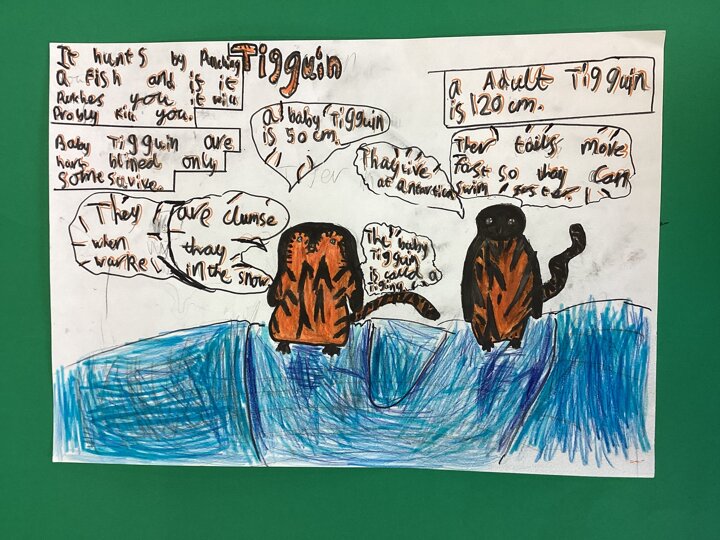 Tigguin
It hunts by Punching
a fish and is it
Punches you it will
Probly kill you.
Baby Tigguin are
half blined only
some savive.
They are clumse
when thay
warke in the snow
a baby Tigguin
is 50 cm.
Thay live
at Antartica
The baby
Tigguin
is called a
a Adult Tigguin
is 120 cm.
Ther tails move
fast so thay can
swim faster.